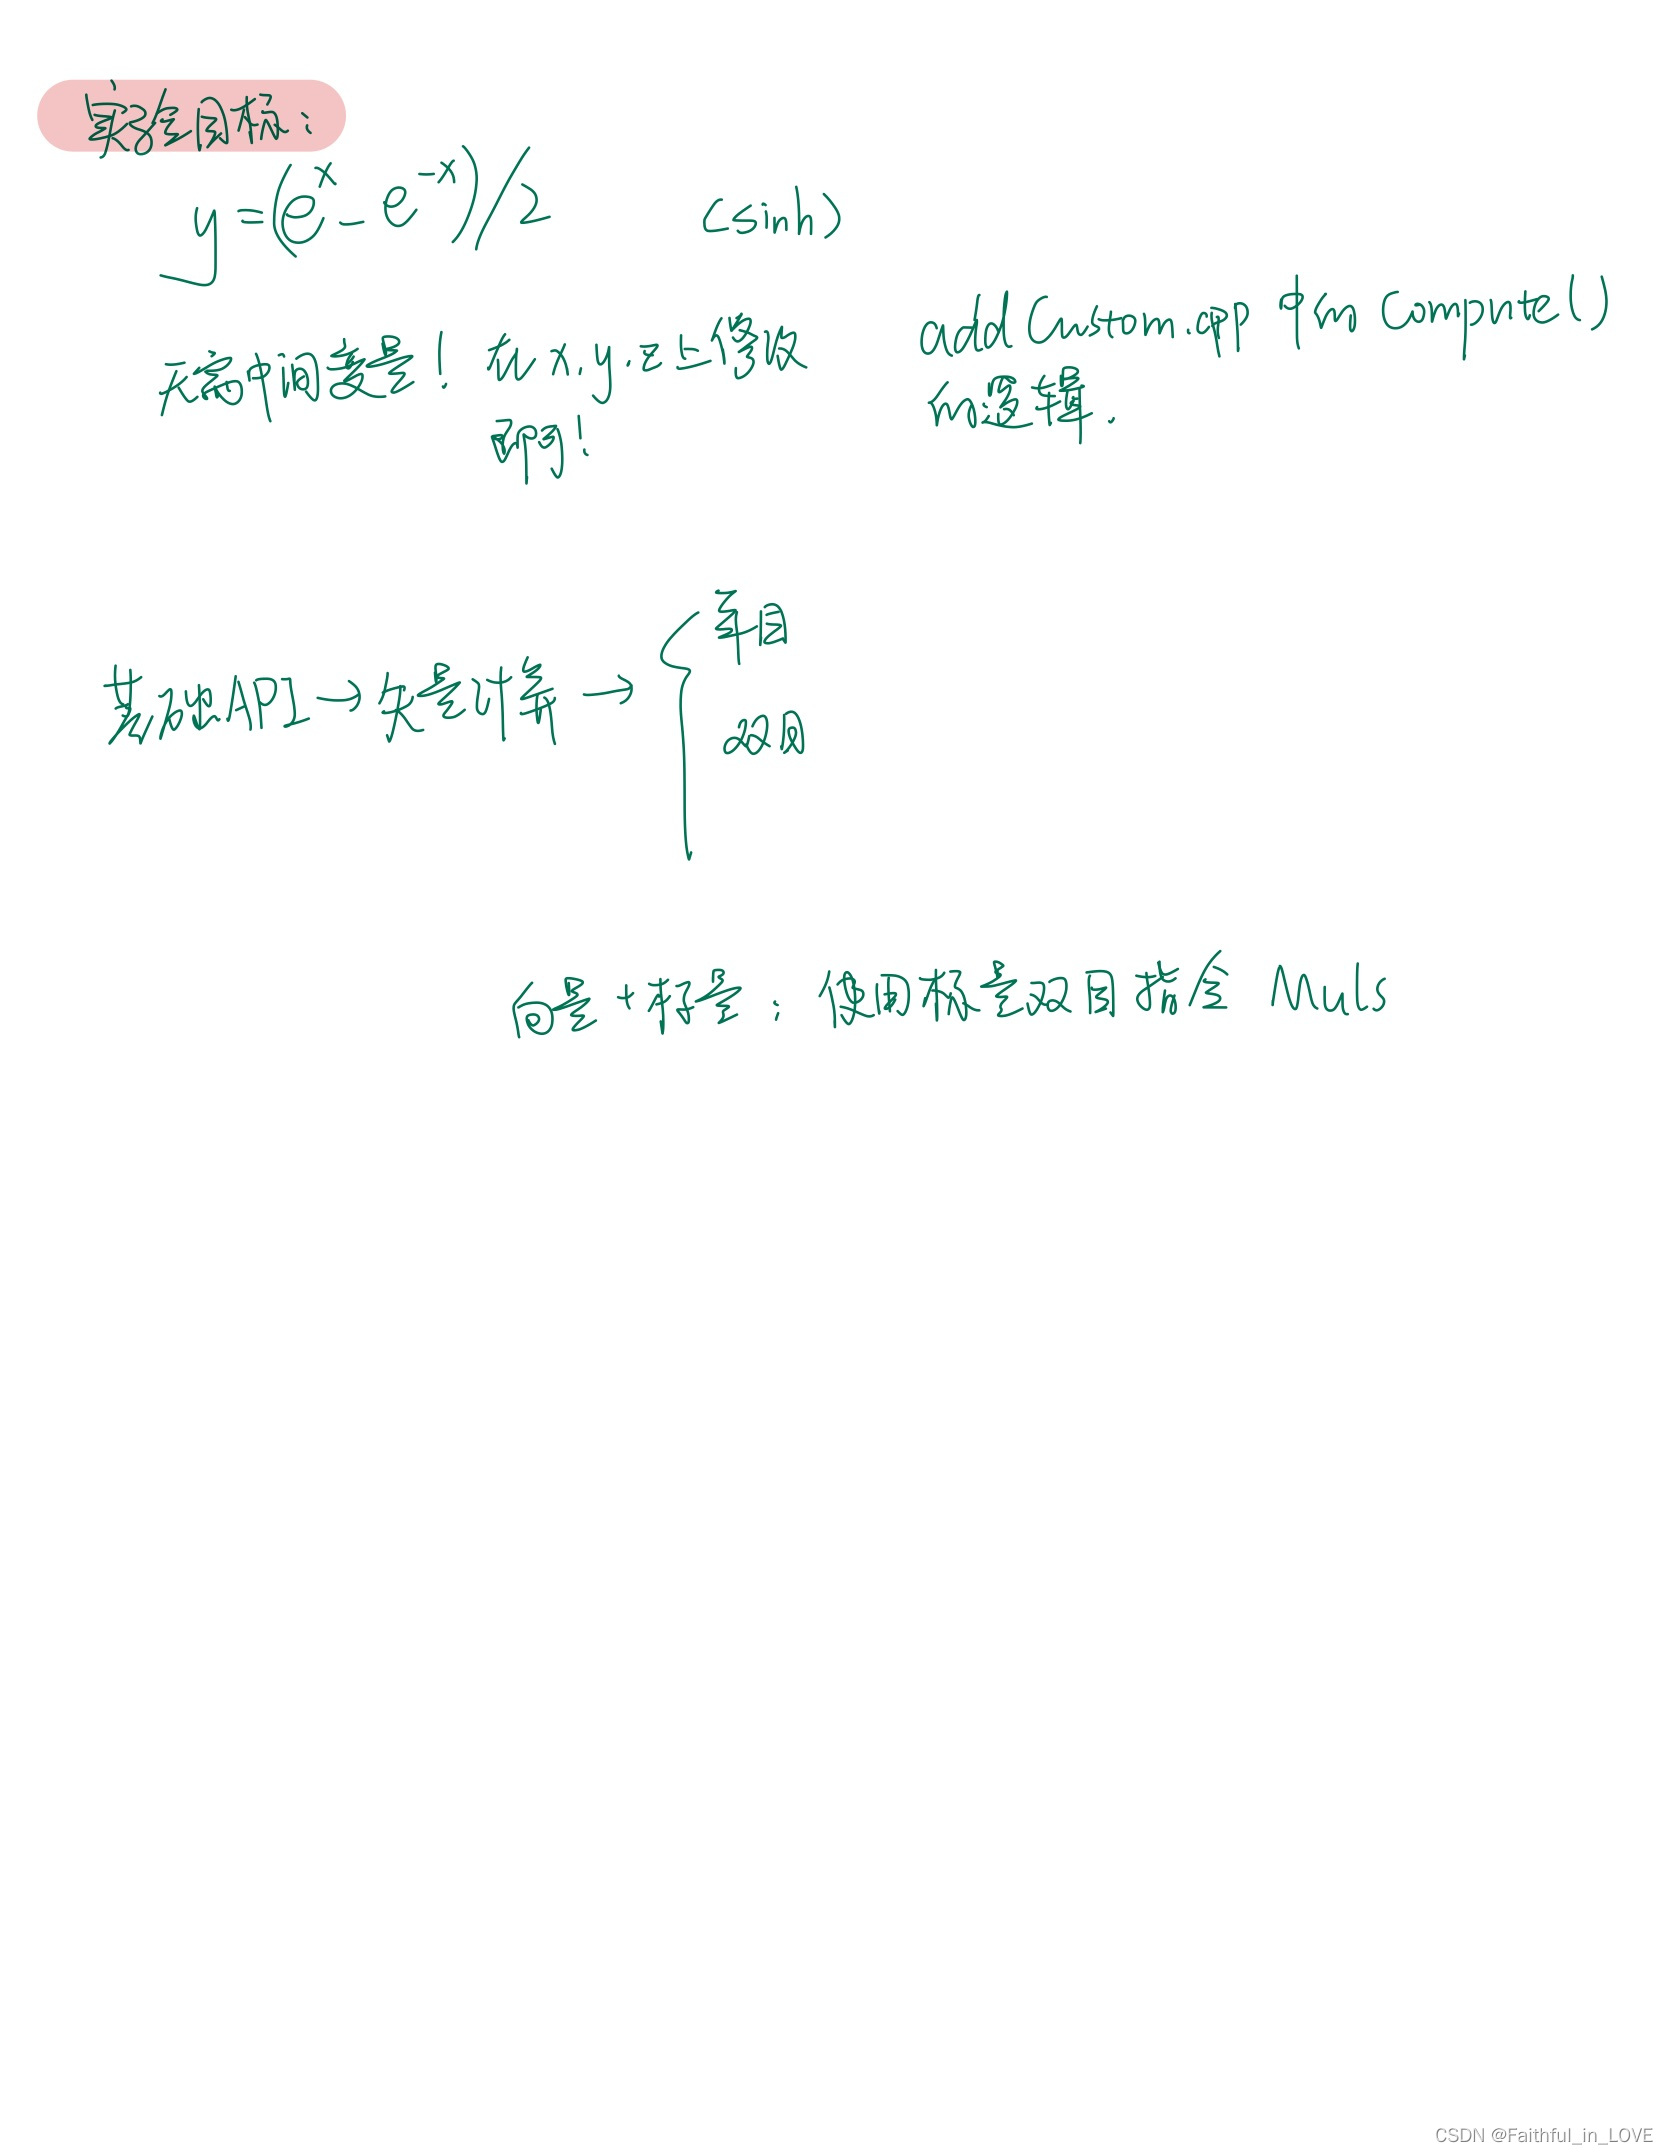 实验目标：
y=(e^x-e^-x)/2 (sinh)
无需中间变量！在x.y.z上修改
即可！
addCustom.cpp中的Compute()
的逻辑.
基础API→矢量计算→
单目
双目
向量+标量：使用标量双目指令 Muls
CSDN @Faithful_in_LOVE